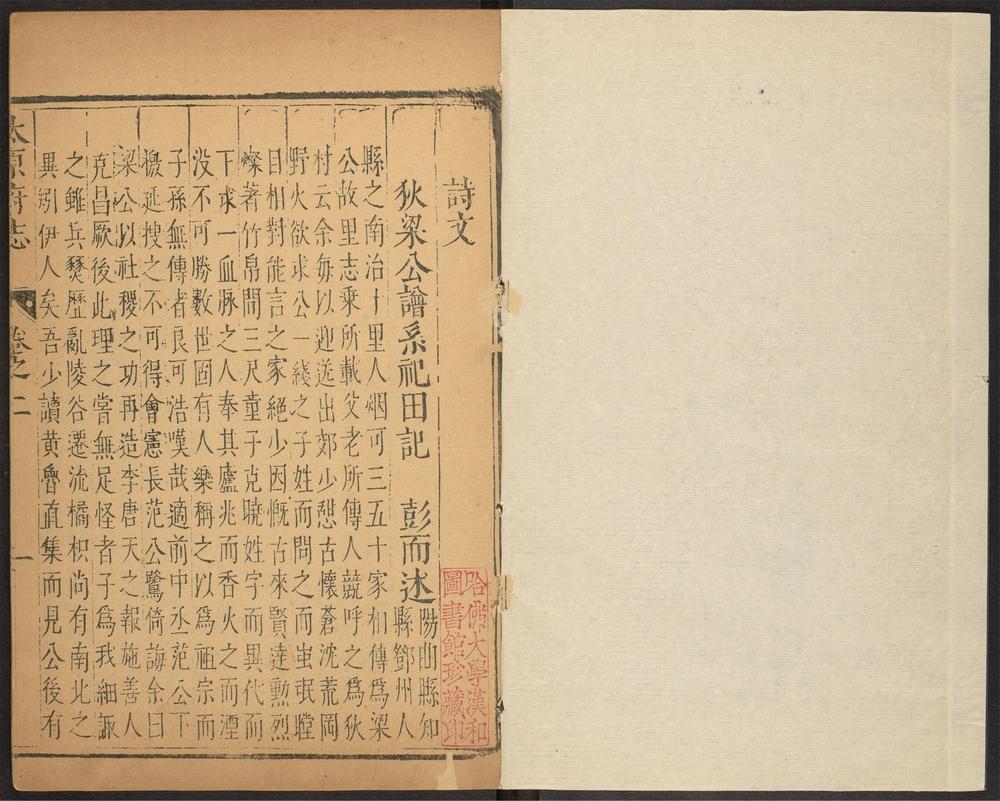 詩文
狄梁公譜系祀田記　彭而述陽曲縣知縣鄧州人
縣之南治十里人烟可三五十家相傳爲梁
公故里志乘所載父老所傳人競呼之爲狄
村云余每以迎送出郊少憇古懷蒼沈荒岡
野火欲求公一綫之子姓而問之而蚩氓瞠
目相對能言之家絶少因慨古來賢達勲烈
燦著竹帛間三尺童子克曉姓字而異代而
下求一血脉之人奉其廬兆而香火之而湮
没不可勝數世固有人樂稱之以爲祖宗而
子孫無傳者良可浩嘆哉適前中丞范公下
檄延搜之不可得會憲長范公鷺倚誨余曰
梁公以社稷之功再造李唐天之報施善人
克昌厥後此理之嘗無足怪者子爲我細諏
之雖兵燹歷亂陵谷遷流橘枳尚有南北之
異矧伊人矣吾少讀黄魯直集而見公後有
太原府志
卷之二
一
哈佛大學漢和
圖書館珍藏印